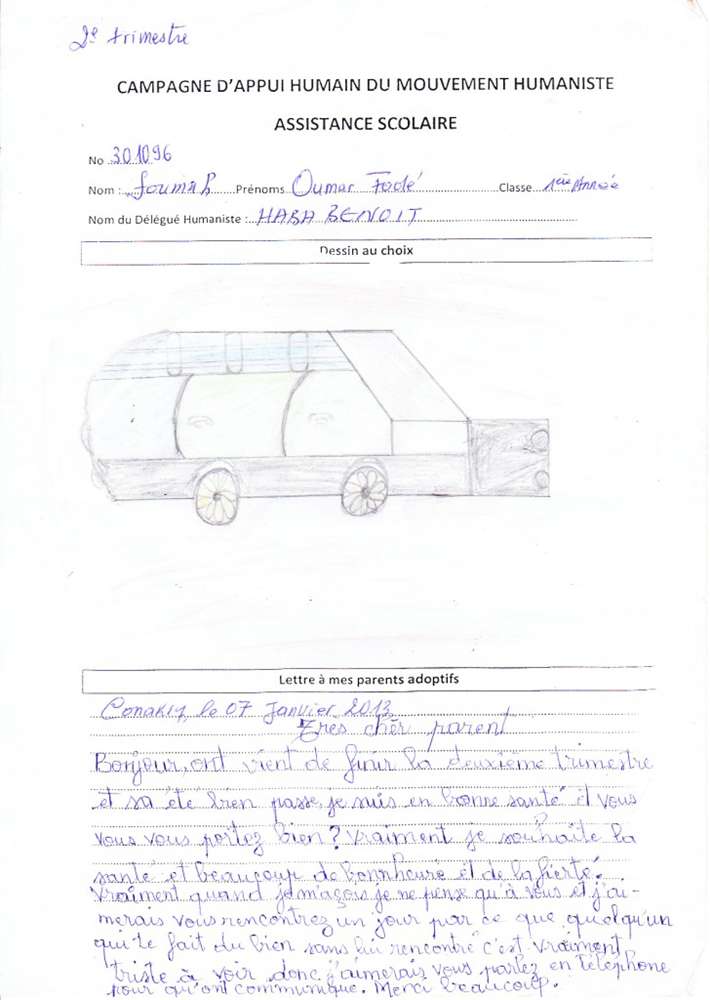 2e trimestre
CAMPAGNE D'APPUI HUMAIN DU MOUVEMENT HUMANISTE
ASSISTANCE SCOLAIRE
No 301096
Nom : Soumah Prénoms Oumar Fodé Classe 1ère Année
Nom du Délégué Humaniste : HABA BENOIT
Dessin au choix
Lettre à mes parents adoptifs
Conakry, le 07 Janvier 2013
Très chèr parent
Bonjour, ont vient de finir la deuxième trimestre
et sa été bien passe, je suis en bonne santé et vous
vous vous portez bien? Vraiment je souhaite la
santé et beaucoup de bonnheure et de la fierté.
Vraiment quand je je ne pense qu'à vous et j'ai-
merais vous rencontrez un jour par ce que quelqu'un
qui te fait du bien sans lui rencontré c'est vraiment
triste à voir donc j'aimerais vous parlez en téléphone
pour qu'ont communique. Merci beaucoup.